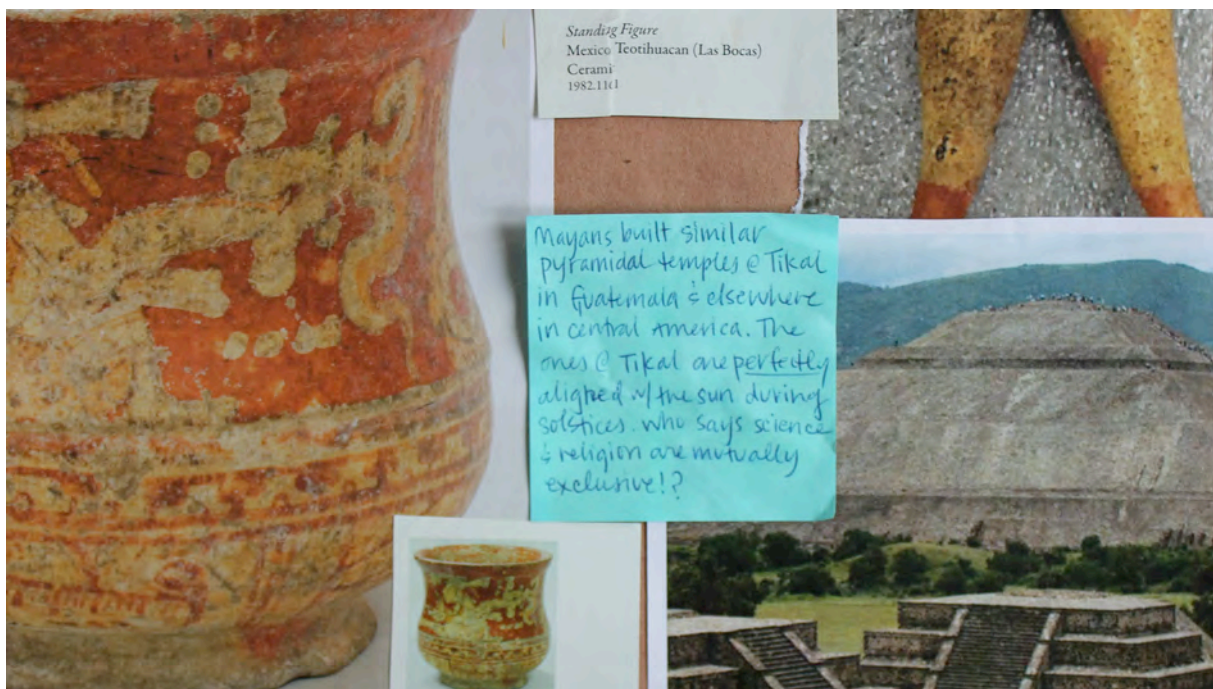 Standing Figure
Mexico Teotihuacan (Las Bocas)
Cerami
1982.11
Mayans built similar
pyramidal temples @ Tikal
in Guatemala & elsewhere
in central America. The
ones @ Tikal are perfectly
aligned w/ the sun during
solstices. Who says science
& religion are mutually
exclusive!?